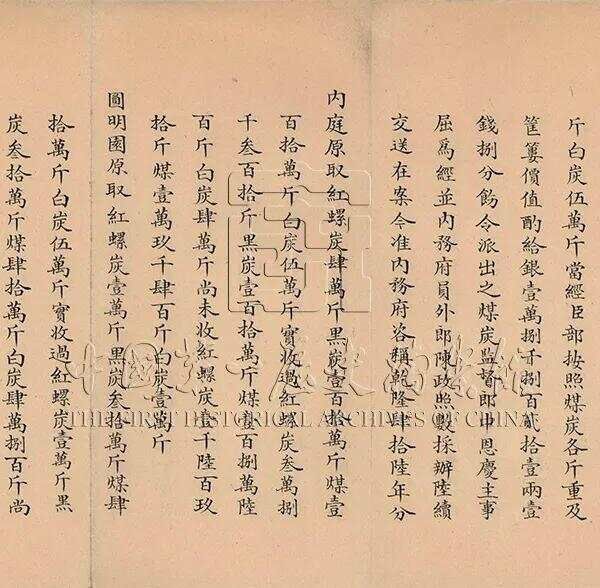 斤白炭伍萬斤當經臣部按照煤炭各斤重及
筐簍價值酌給銀壹萬捌千捌百貳拾壹兩壹
錢捌分飭令派出之煤炭監督郎中恩慶主事
屈爲經並內務府員外郎陳政照數採辦陸續
交送在案今准內務府咨稱乾隆肆拾陸年分
內庭原取紅螺炭肆萬斤黑炭壹百拾萬斤煤壹
百拾萬斤白炭伍萬斤實收過紅螺炭叁萬捌
千叁百拾斤黑炭壹百拾萬斤煤壹百捌萬陸
百斤白炭肆萬斤尚未收紅螺炭壹千陸百玖
拾斤煤壹萬玖千肆百斤白炭壹萬斤
圓明園原取紅螺炭壹萬斤黑炭叁拾萬斤煤肆
拾萬斤白炭伍萬斤實收過紅螺炭壹萬斤黑
炭叁拾萬斤煤肆拾萬斤白炭肆萬捌百斤尚
中國第一歷史檔案館
THE FIRST HISTORICAL ARCHIVES OF CHINA